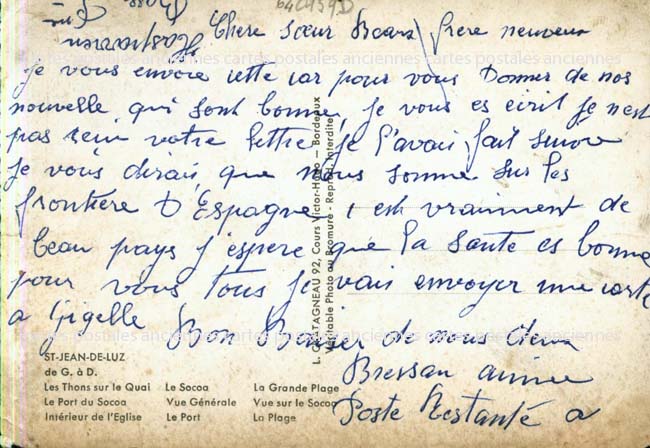 64C459D
Chere sœur Beaux frere neuveux
je vous envoie cette car pour vous Donner de nos
nouvelle qui sont bonne, je vous es ecrit je nest
pas votre lettre je l'avais fait suivre
je vous dirais que nous somme sur les
frontière D'Espagne, est vraiment de
beau pays j'espere que la sante es bonne
pour vous tous je vais envoyer une carte
a Gigelle Bon Baiser de nous deux
Bressan aimée
Poste Restante a
Hossegor
ST-JEAN-DE-LUZ
de G. à D.
Les Thons sur le Quai Le Socoa La Grande Plage
Le Port du Socoa Vue Générale Vue sur le Socoa
Intérieur de l'Eglise Le Port La Plage
L. CHATAGNEAU 92, Cours Victor-Hugo — Bordeaux
Véritable Photo au Bromure - Reprod. Interdite
cartes postales anciennes cartes postales anciennes cartes postales anciennes